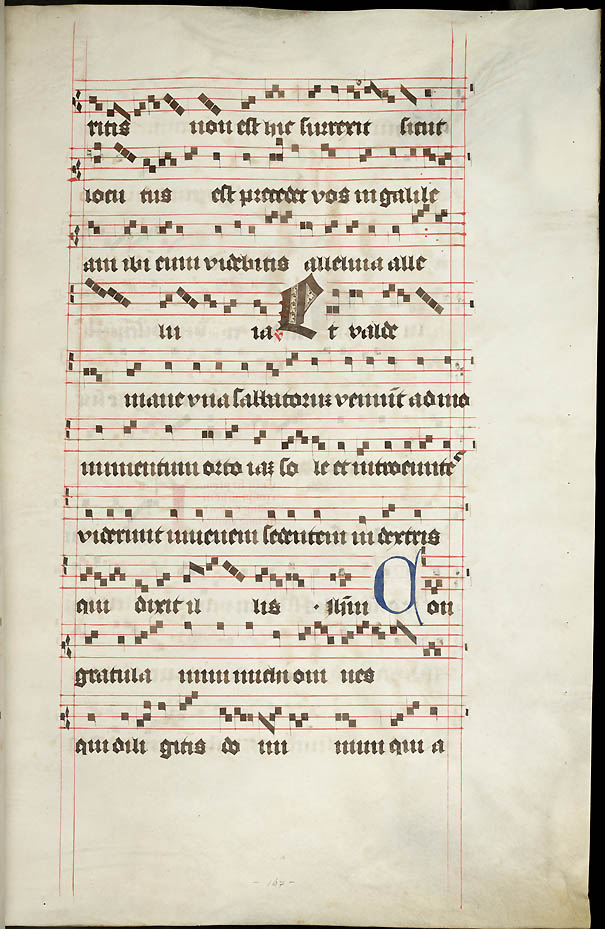 ritis non est hic surrexit sicut
locu tus est precedet vos in galile
am ibi eum videbitis alleluia alle
lu ia Et valde
mane vna sabbatorum veniunt ad mo
numentum orto iam so le et introeuntes
viderunt iuuenem sedentem in dextris
qui dixit il lis Con
gratula mini michi om nes
qui dili gitis do mi num qui a
167